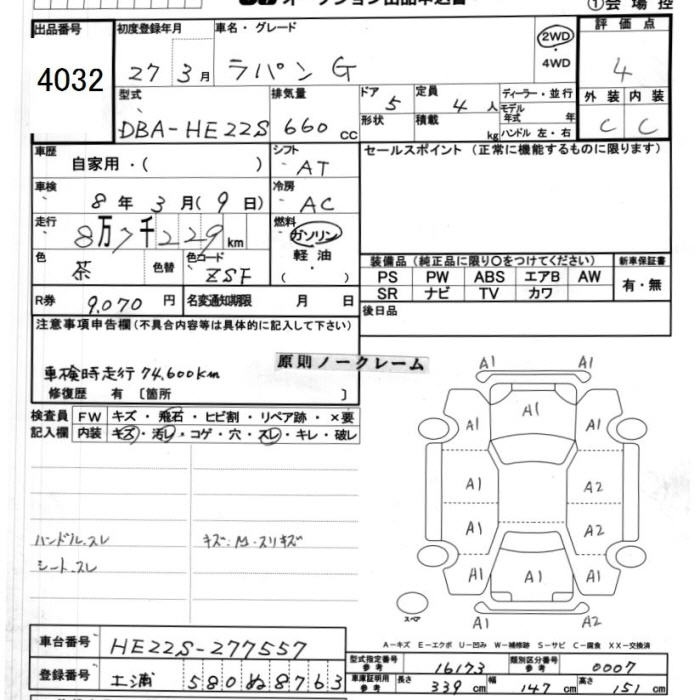 ①会場控
出品番号 初度登録年月 車名・グレード 評価点
4032 27年3月 ラパン G 2WD ・ 4WD 4
型式 排気量 ドア 定員 ディーラー・並行 外装 内装
DBA-HE22S 660cc 5 4人 モデル年式 年 C C
形状 積載 kg ハンドル 左・右
車歴 シフト セールスポイント(正常に機能するものに限ります)
自家用・( ) AT
車検 冷房
8年3月(9日) AC
走行 燃料
8万7千229km ガソリン
軽油
( )
色 色替 色コード
茶 ZSF
装備品(純正品に限り○をつけてください) 新車保証書
PS PW ABS エアB AW 有・無
SR ナビ TV カワ
R券 9,070円 名変通知期限 月 日 後日品
注意事項申告欄(不具合内容等は具体的に記入して下さい)
原則ノークレーム
車検時走行74,600km
修復歴 有〔箇所 〕
検査員 FW キズ・飛石・ヒビ割・リペア跡・×要
記入欄 内装 キズ・汚レ・コゲ・穴・スレ・キレ・破レ
A1 A1
A1 A1 A1
A1 A2
A1 A2
A1 A1 A1
A1 A2
ハンドル.スレ キズ:M・スリキズ
シート.スレ
スペア
A-キズ E-エクボ U-凹み W-補修跡 S-サビ C-腐食 XX-交換済
車台番号 HE22S-277557
登録番号 土浦 580 ぬ 8763
型式指定番号 参考 16173 類別区分番号 参考 0007
車庫証明用 参考 長さ 339cm 幅 147cm 高さ 151cm